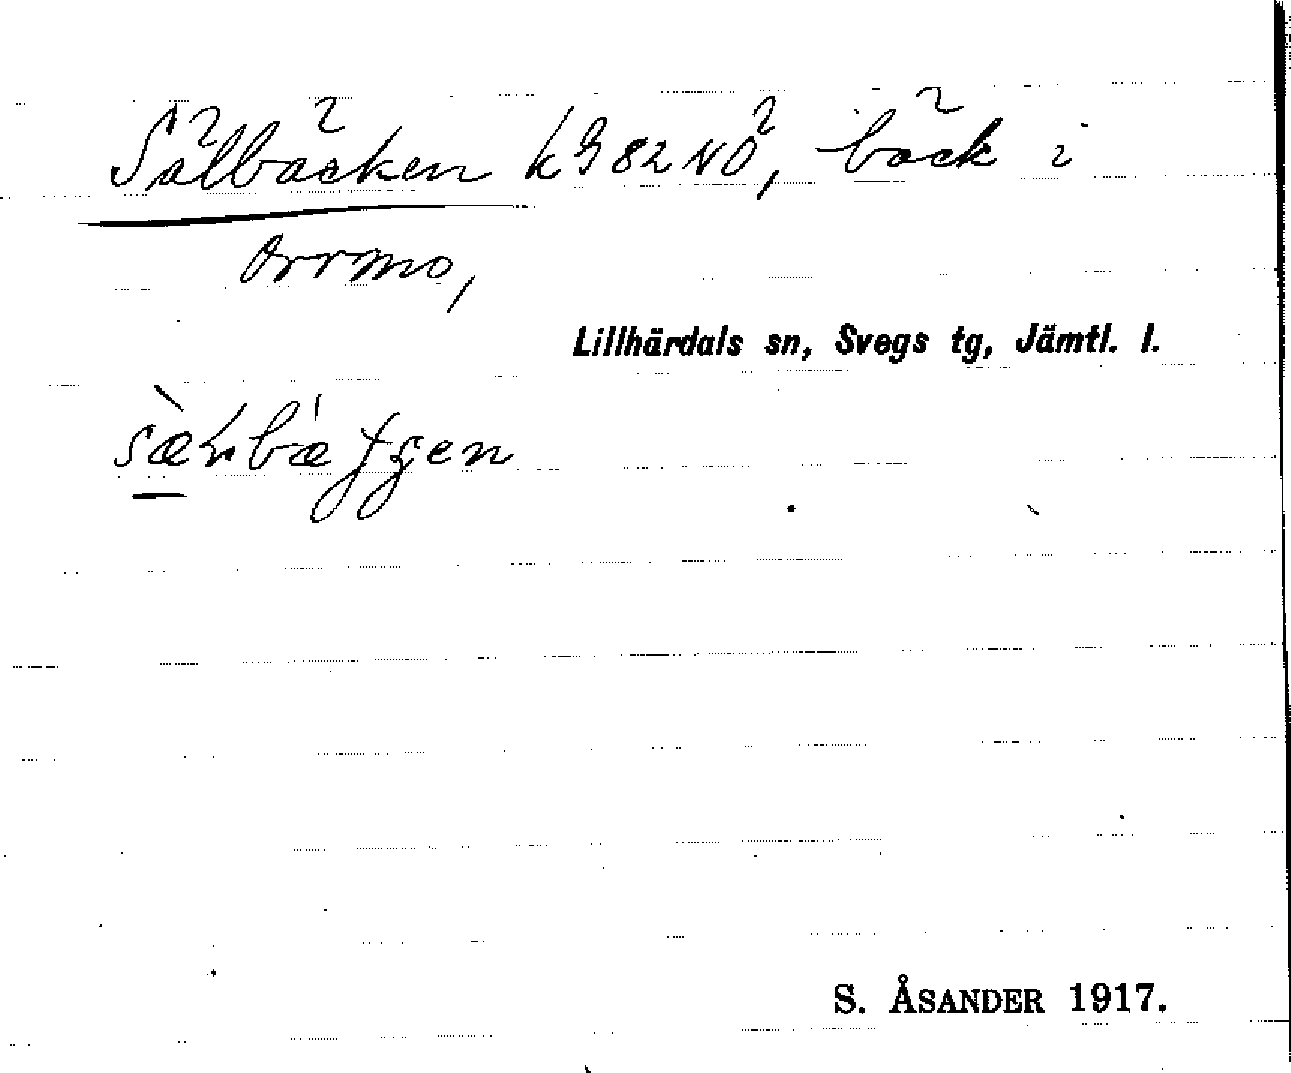 Sälbäcken kg 82 NÖ, bäck i
Orrmo,
Lillhärdals sn, Svegs tg, Jämtl. l.
S. ÅSANDER 1917.